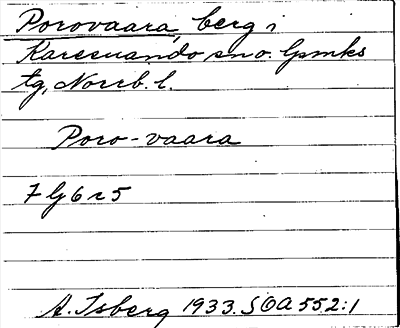 Porovaara, berg i
Karesuando sn o. lpmks
tg, Norrb. l.
Poro-vaara
7 lj 6 r 5
A. Isberg 1933. SOA 552:1